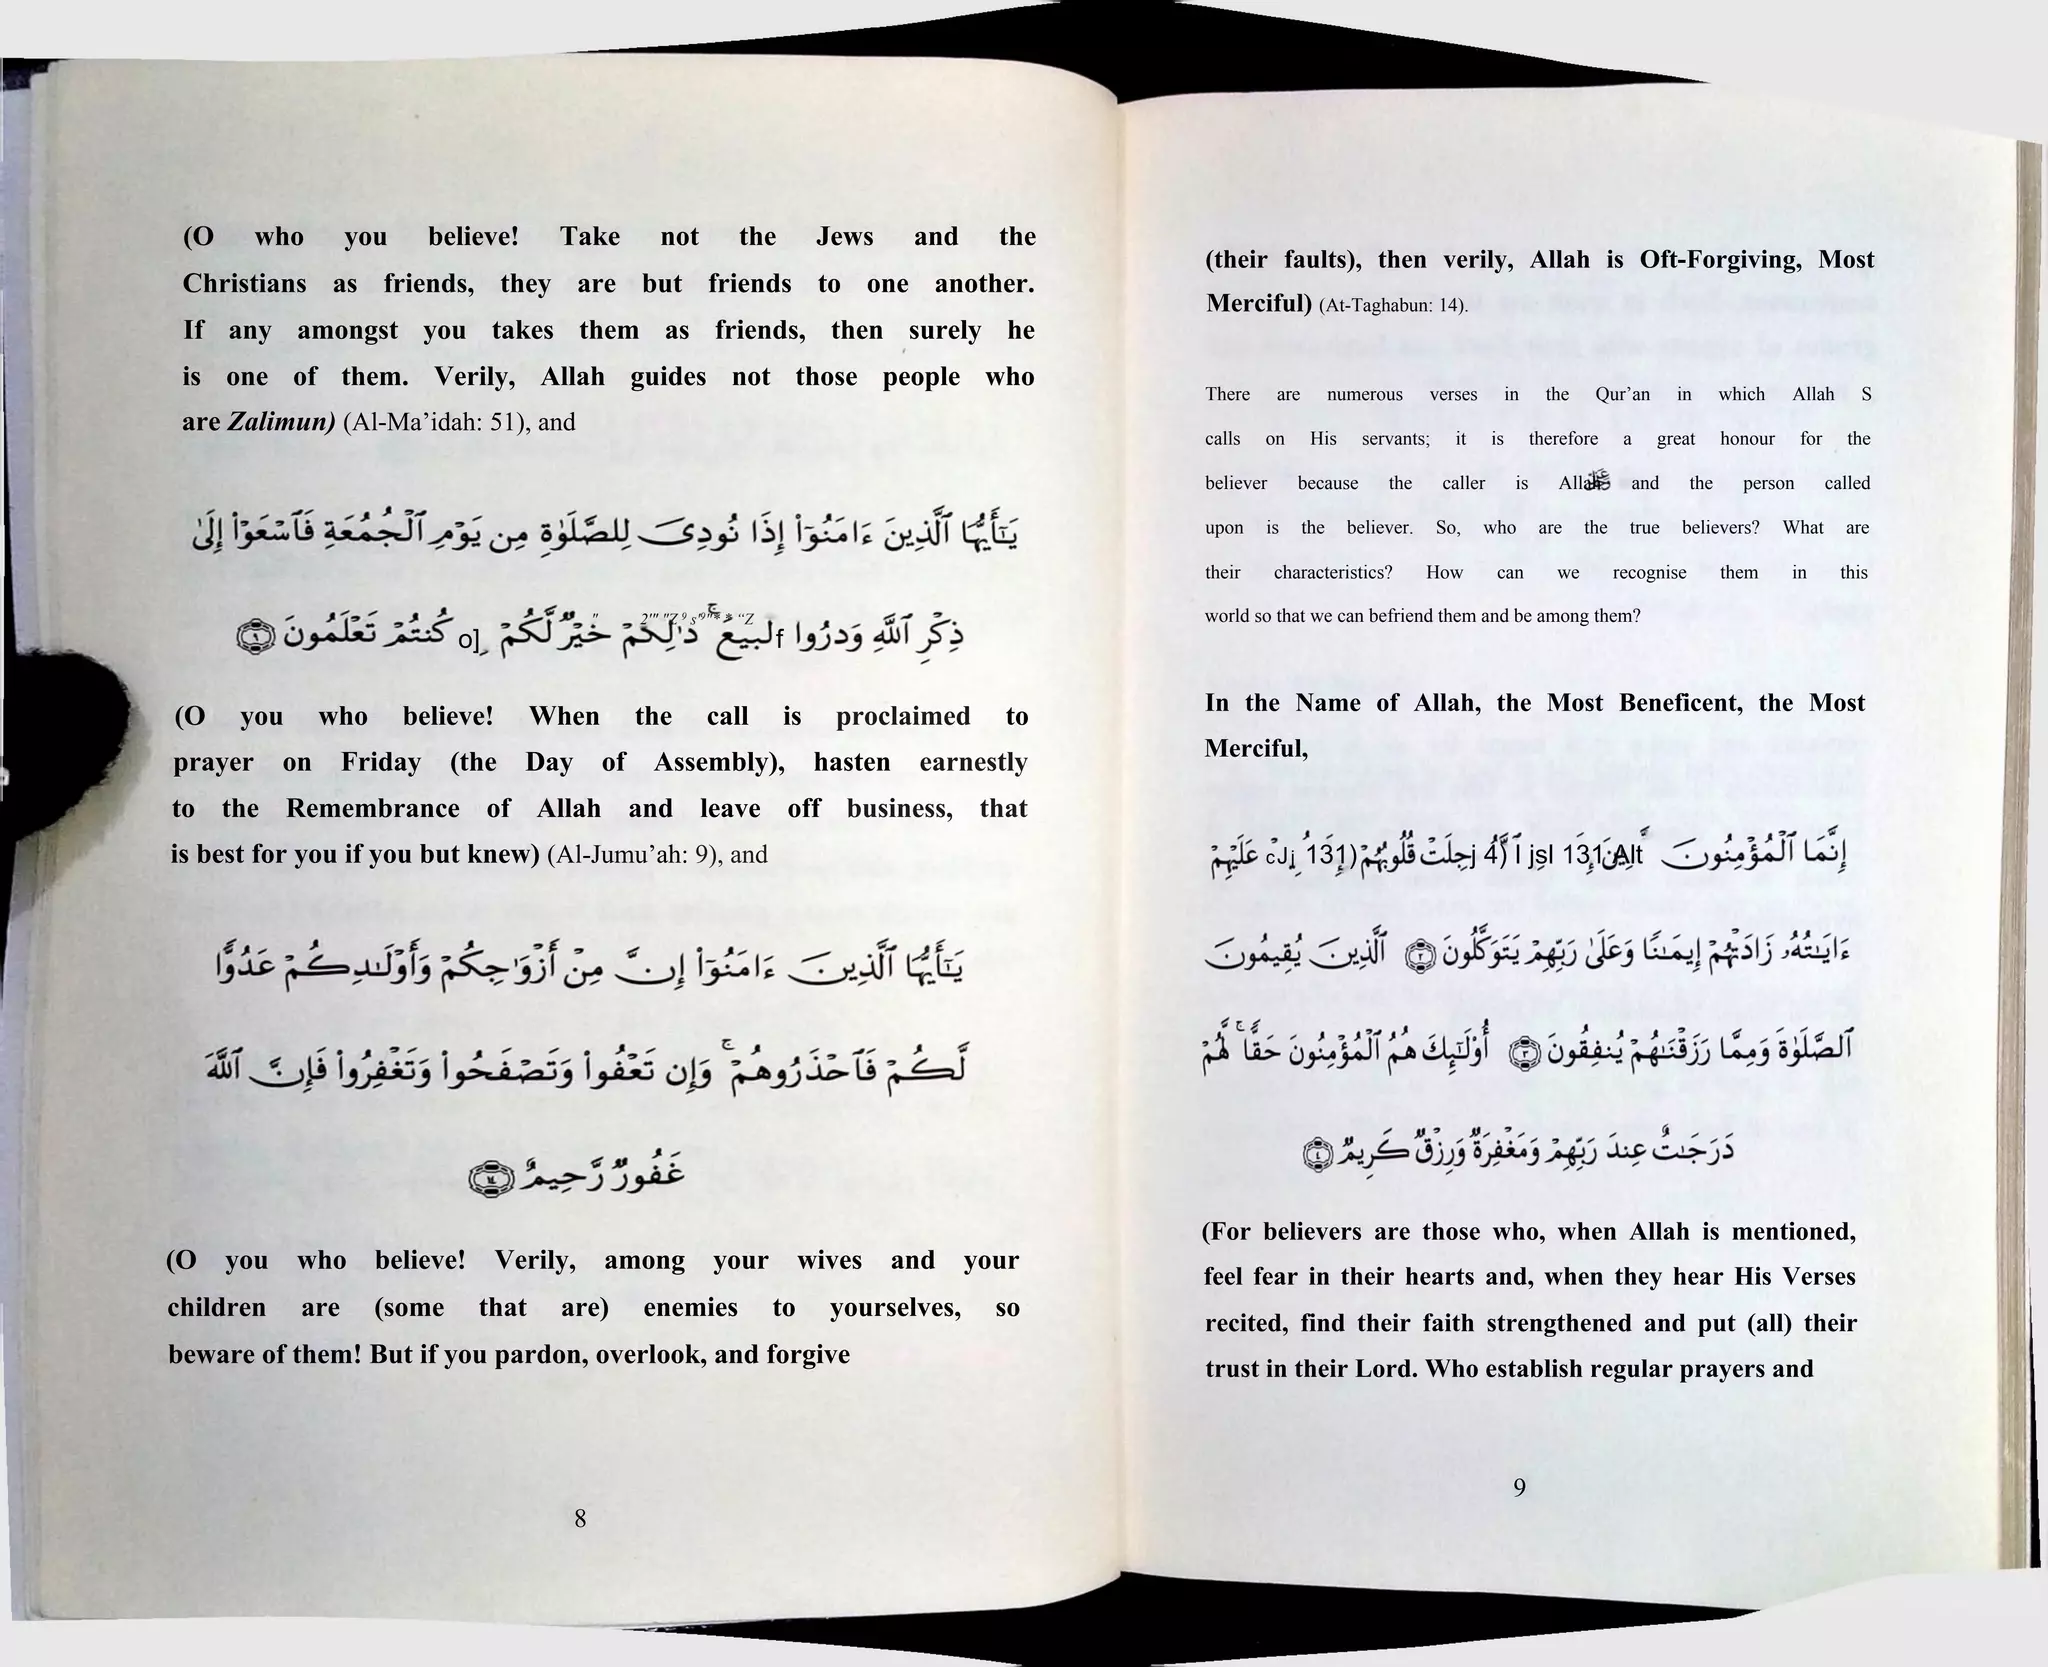 (O who you believe! Take not the Jews and the
Christians as friends, they are but friends to one another.
If any amongst you takes them as friends, then surely he
is one of them. Verily, Allah guides not those people who
are Zalimun) (Al-Ma’idah: 51), and
يَـٰٓأَيُّهَا ٱلَّذِينَ ءَامَنُوٓا۟ إِذَا نُودِىَ لِلصَّلَوٰةِ مِن يَوْمِ ٱلْجُمُعَةِ فَٱسْعَوْا۟ إِلَىٰ
ذِكْرِ ٱللَّهِ وَذَرُوا f لبيعَ ۚ ذَٰلِكُمْ خَيْرٌ لَّكُمْ o] كُنتُمْ تَعْلَمُونَ ٩
(O you who believe! When the call is proclaimed to
prayer on Friday (the Day of Assembly), hasten earnestly
to the Remembrance of Allah and leave off business, that
is best for you if you but knew) (Al-Jumu’ah: 9), and
يَـٰٓأَيُّهَا ٱلَّذِينَ ءَامَنُوٓا۟ إِنَّ مِنْ أَزْوَٰجِكُمْ وَأَوْلَـٰدِكُمْ عَدُوًّا
لَّكُمْ فَٱحْذَرُوهُمْ ۚ وَإِن تَعْفُوا۟ وَتَصْفَحُوا۟ وَتَغْفِرُوا۟ فَإِنَّ ٱللَّهَ
غَفُورٌ رَّحِيمٌ ١٤
(O you who believe! Verily, among your wives and your
children are (some that are) enemies to yourselves, so
beware of them! But if you pardon, overlook, and forgive
8
(their faults), then verily, Allah is Oft-Forgiving, Most
Merciful) (At-Taghabun: 14).
There are numerous verses in the Qur’an in which Allah S
calls on His servants; it is therefore a great honour for the
believer because the caller is Allah and the person called
upon is the believer. So, who are the true believers? What are
their characteristics? How can we recognise them in this
world so that we can befriend them and be among them?
In the Name of Allah, the Most Beneficent, the Most
Merciful,
إِنَّمَا ٱلْمُؤْمِنُونَ قُلُوبُهُمْ عَلَيْهِمْ
ءَايَـٰتُهُۥ زَادَتْهُمْ إِيمَـٰنًا وَعَلَىٰ رَبِّهِمْ يَتَوَكَّلُونَ ٢ ٱلَّذِينَ يُقِيمُونَ
ٱلصَّلَوٰةَ وَمِمَّا رَزَقْنَـٰهُمْ يُنفِقُونَ ٣ أُو۟لَـٰٓئِكَ هُمُ ٱلْمُؤْمِنُونَ حَقًّا ۚ لَّهُمْ
دَرَجَـٰتٌ عِندَ رَبِّهِمْ وَمَغْفِرَةٌ وَرِزْقٌ كَرِيمٌ ٤
(For believers are those who, when Allah is mentioned,
feel fear in their hearts and, when they hear His Verses
recited, find their faith strengthened and put (all) their
trust in their Lord. Who establish regular prayers and
9